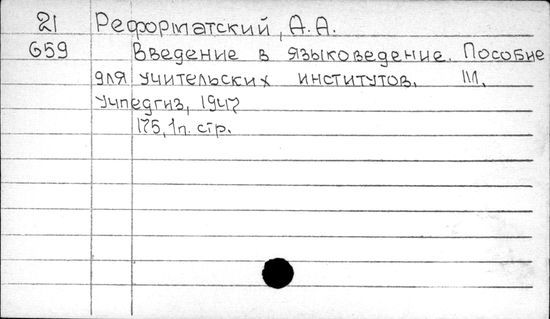 21 Реформатский, А.А.
G59 Введение в языковедение. Пособие
для учительских институтов. М.
Учпедгиз, 1947
175, 1 п. стр.